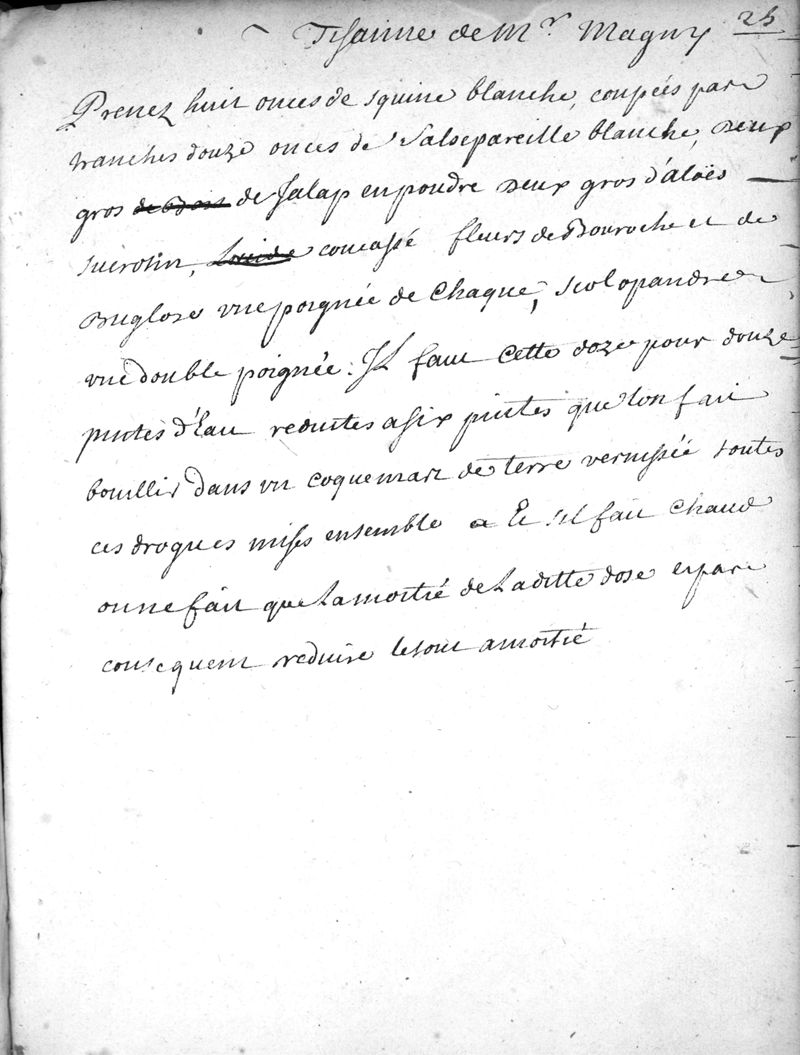 25
Tisanne de Mr Magny
Prenez huit onces de squine blanche, coupées par
tranches douze onces de Salsepareille blanche, deux
gros de Bois de Jalap en poudre deux gros d'aloës
sucrotin, concassé fleurs de Bouroche et de
Buglose une poignée de Chaque, scolopandre
une double poignée. Il faut Cette doze pour douze
pintes d'Eau reduites a six pintes que l'on fait
bouillir dans un coquemart de terre vernissée toutes
ces drogues mises ensemble Et s'il fait Chaud
on ne fait que La moitié de Laditte dose et par
consequent reduire le tout a moitié